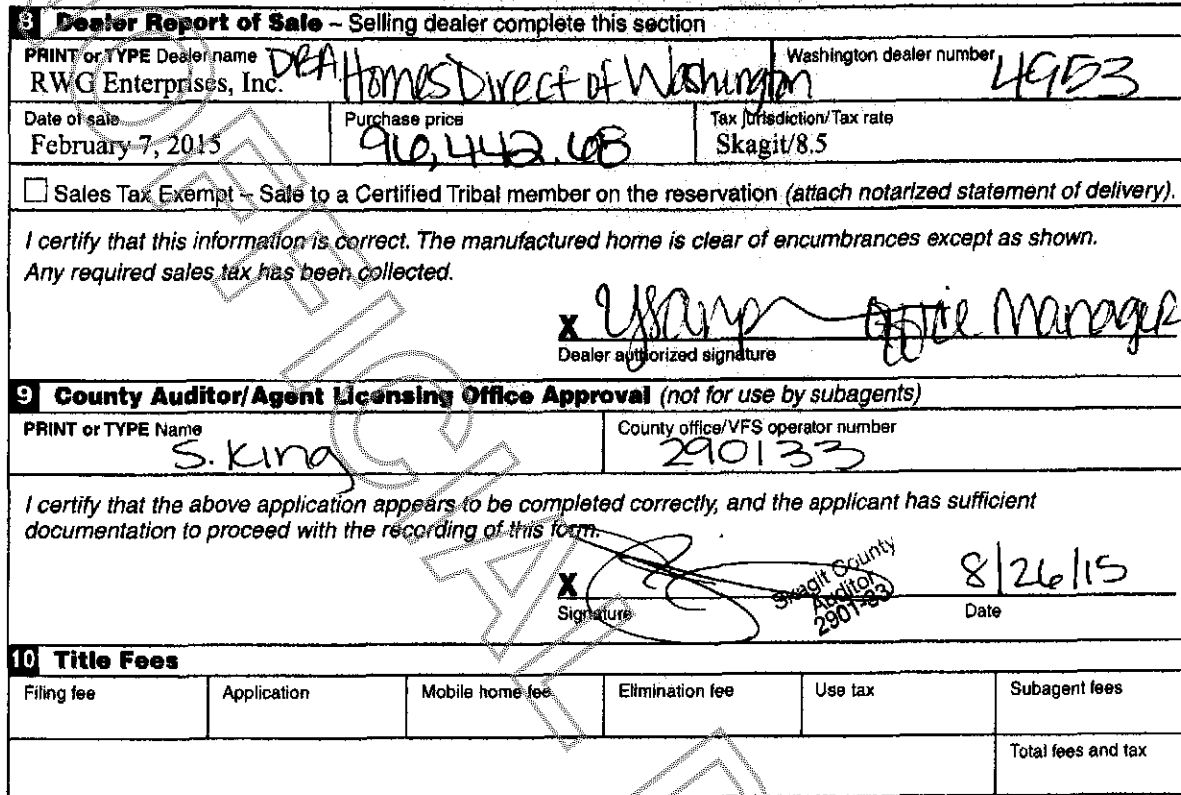 8 Dealer Report of Sale – Selling dealer complete this section
PRINT or TYPE Dealer name
Washington dealer number
RWG Enterprises, Inc. DBA Homes Direct of Washington
4953
Date of sale
Purchase price
Tax jurisdiction/Tax rate
February 7, 2015
96,442.68
Skagit/8.5
Sales Tax Exempt – Sale to a Certified Tribal member on the reservation (attach notarized statement of delivery).
I certify that this information is correct. The manufactured home is clear of encumbrances except as shown.
Any required sales tax has been collected.
X Office Manager
Dealer authorized signature
9 County Auditor/Agent Licensing Office Approval (not for use by subagents)
PRINT or TYPE Name
County office/VFS operator number
S. King
290133
I certify that the above application appears to be completed correctly, and the applicant has sufficient
documentation to proceed with the recording of this form.
X
Skagit County
Auditor
2901-33
8/26/15
Signature
Date
10 Title Fees
Filing fee
Application
Mobile home fee
Elimination fee
Use tax
Subagent fees
Total fees and tax
UNOFFICIAL